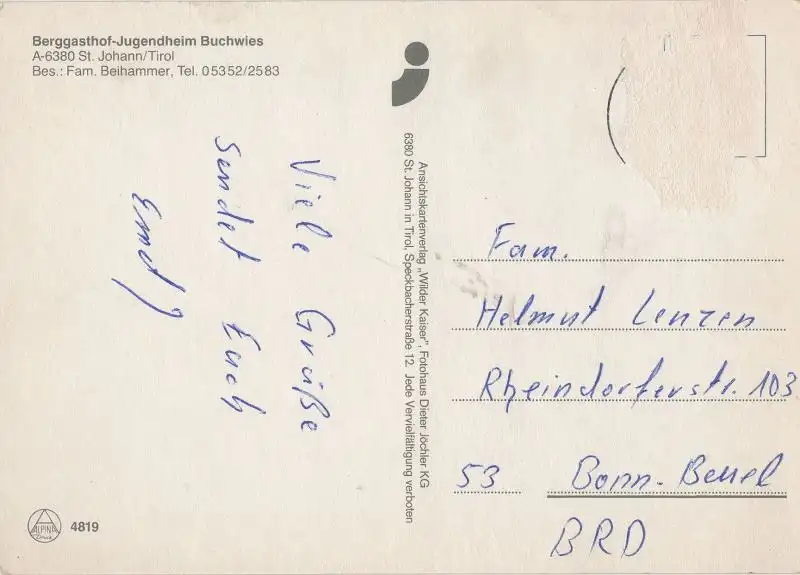 Berggasthof-Jugendheim Buchwies
A-6380 St. Johann/Tirol
Bes.: Fam. Beihammer, Tel. 05352/2583
Viele Grüße
sendet Euch
Ansichtskartenverlag „Wilder Kaiser", Fotohaus Dieter Jöchler KG
6380 St. Johann in Tirol, Speckbacherstraße 12. Jede Vervielfältigung verboten
Fam.
Helmut Lenzen
Rheindorferstr. 103
53 Bonn-Beuel
BRD
ALPINA
4819